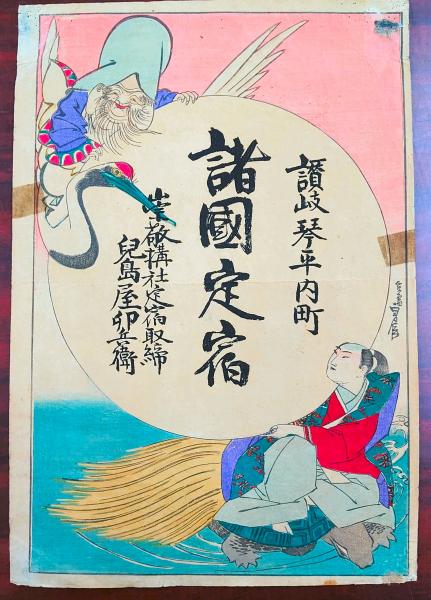 讃岐琴平内町
諸國定宿
崇敬構社定宿取締
兒島屋卯兵衛